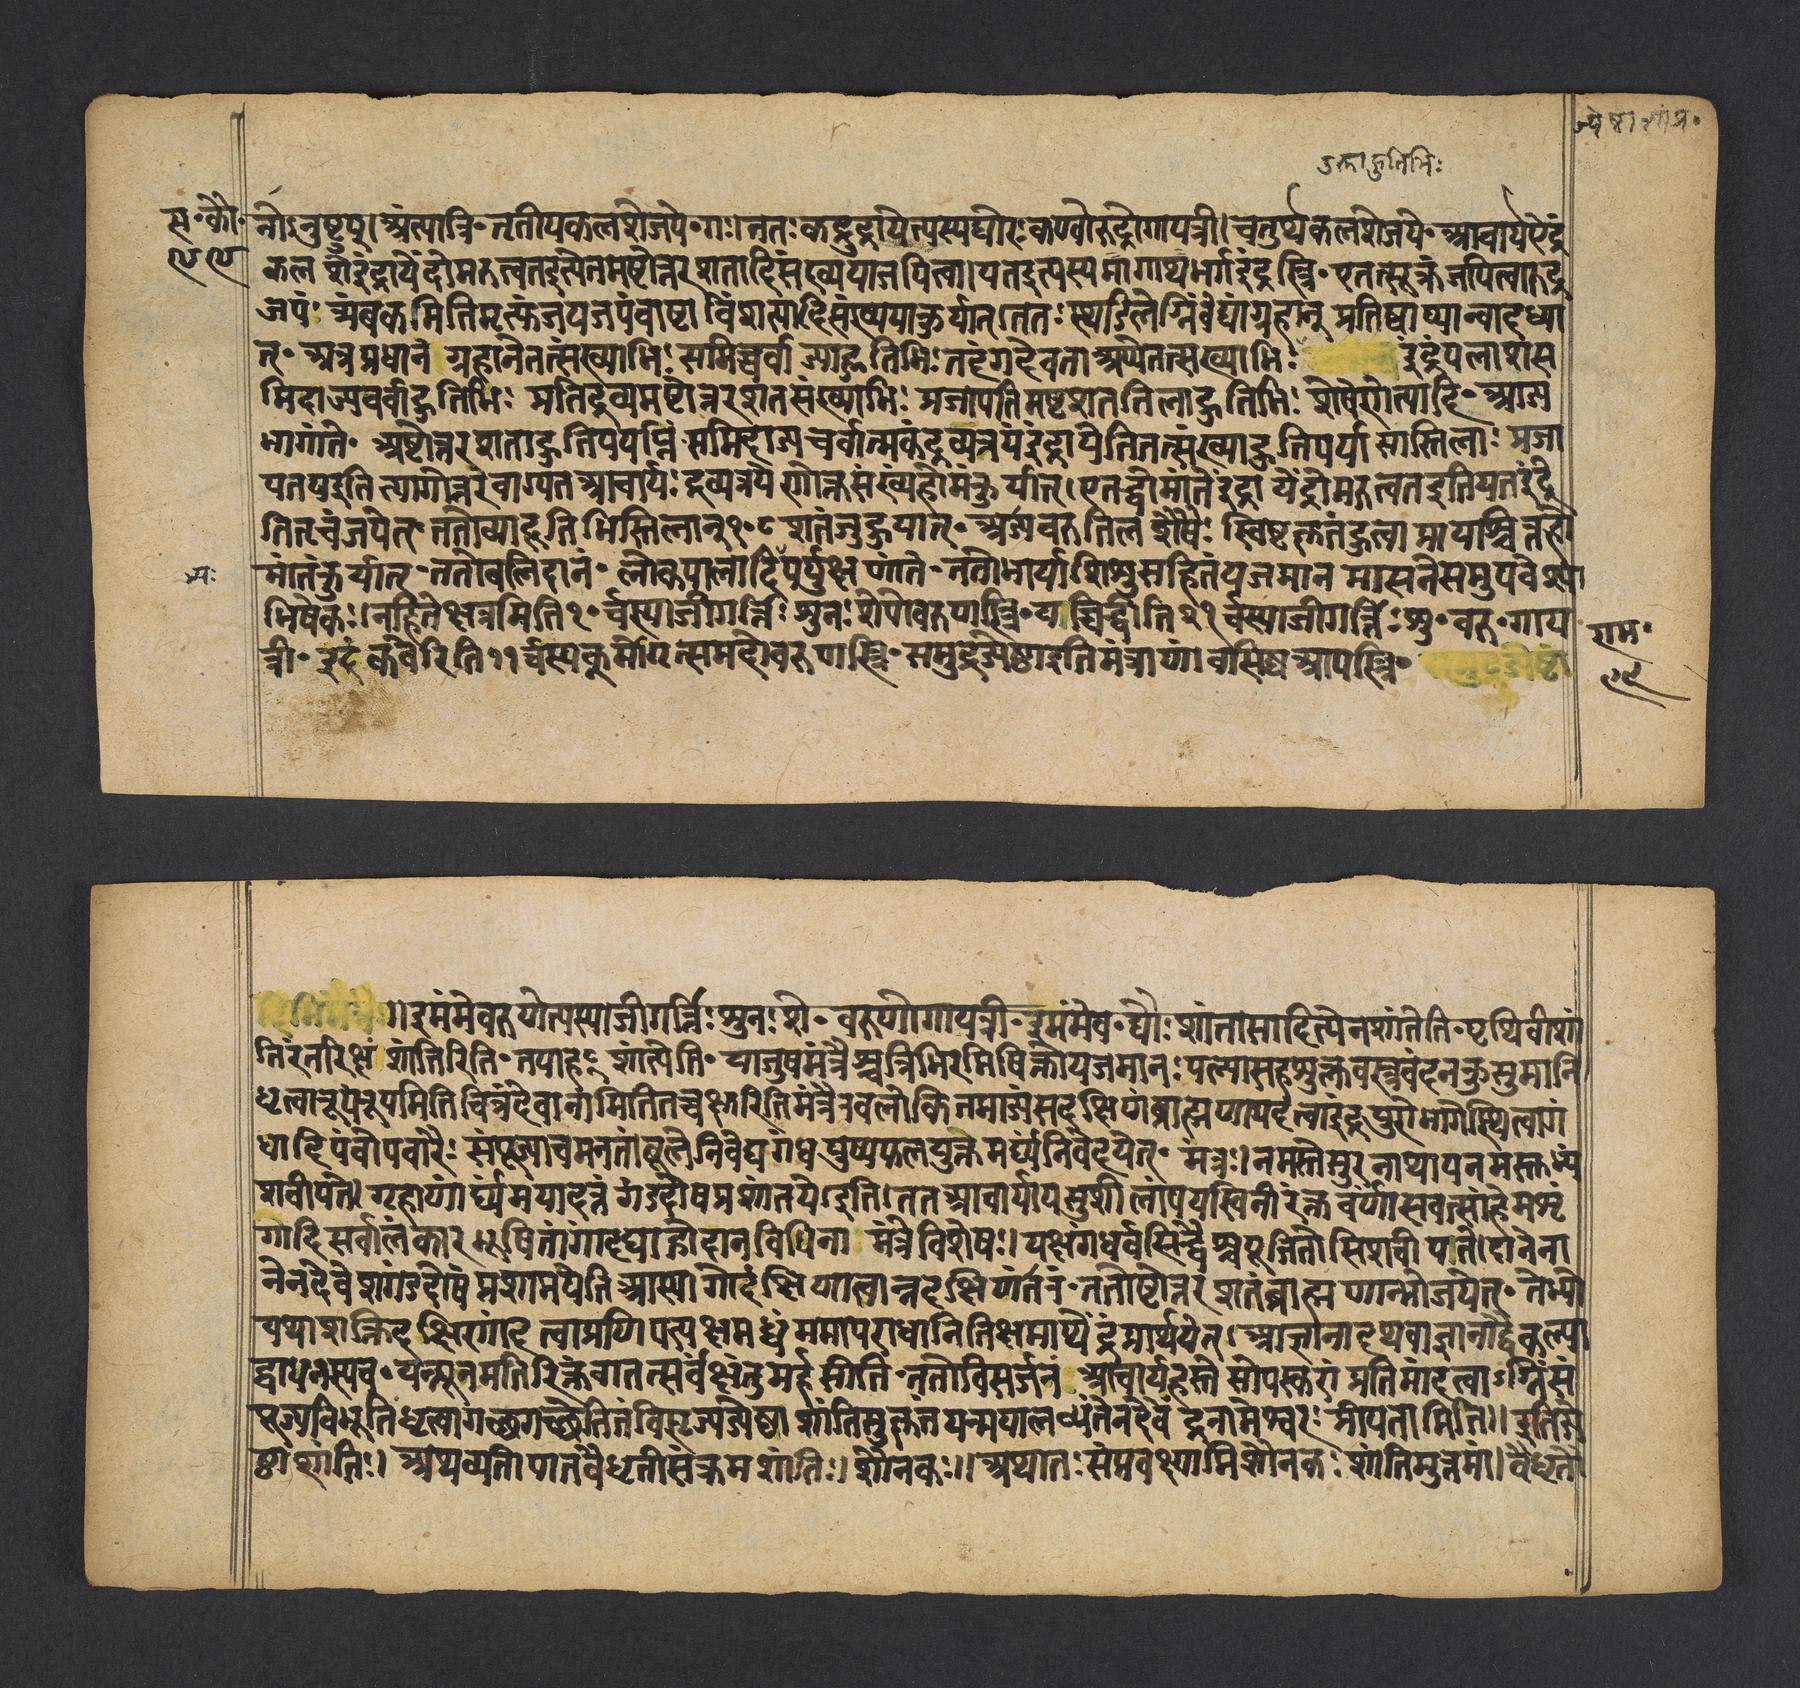 ज्येष्ठा शां प्र॰
उक्ताहुतिभिः
सं॰कौ॰
९९
र्नोऽनुष्टुप् । अंत्यात्रि॰ तृतीयकलशेजपे॰ गः । ततः कद्रुद्रायेत्यस्यघोरः कण्वोरुद्रोगायत्री । चतुर्थकलशेजपे॰ आचार्यऐंद्र
कलशेइंद्रायेंदोमरुत्वतइत्येतमष्टोत्तरशतादिसंख्ययाजपित्वा । यतइत्यस्यप्रागाथभर्गइंद्रस्त्रि॰ एतत्सूक्तंजपित्वारुद्र
जपं त्र्यंबकमितिमृत्युंजयजपंवाष्टाविंशत्यादिसंख्ययाकुर्यात् । ततः स्थंडिलेग्निंवेद्यांग्रहान् प्रतिष्ठाप्यान्वादध्या
त्॰ अत्रप्रधाने ग्रहानेतत्संख्याभिः समिच्चर्वाज्याहुतिभिः तदंगदेवता अप्येतत्संख्याभिः इंद्रंपलाशस
मिदाज्यचर्वाहुतिभिः प्रतिद्रव्यमष्टोत्तरशतसंख्याभिः प्रजापतिमष्टशततिलाहुतिभिः शेषेणेत्यादि॰ आज्य
भागांते॰ अष्टोत्तरशताहुतिपर्याप्तं समिदाज्यचर्वात्मकंद्रव्यत्रयंइंद्रायेतितत्संख्याहुतिपर्याप्तास्तिलाः प्रजा
पतयइति त्यागोत्तरंवाग्यतआचार्यः द्रव्यत्रयेणोक्तसंख्यंहोमंकुर्यात् । एतद्धोमांतेइंद्रायेंदोमरुत्वतइतियतइंद्रे
तितृचंजपेत्॰ ततोव्याहृतिभिस्तिलान् १०८ शतंजुहुयात्॰ आज्यचरुतिलशेषैः स्विष्टकृतंहुत्वा प्रायश्चित्तहो
मांतंकुर्यात्॰ ततोबलिदानं॰ लोकपालादिपूर्णुक्षणांते॰ ततोभार्याशिशुसहितंयजमानमासनेसमुपवेश्या
भिषेकः । नहितेक्षत्रमिति १०र्चस्याजीगर्त्तिः शुनःशेपोवरुणस्त्रि॰ यच्चिद्धीति २१र्चस्याजीगर्त्तिः शु॰ वरु॰ गाय
त्री॰ इदंकवेरिति ११र्चस्यकूर्मोगृत्समदोवरुणस्त्रि॰ समुद्रज्येष्ठाइतिमंत्राणांवसिष्ठआपस्त्रि॰
राम॰
९९
इमंमेवरुणेत्यस्याजीगर्त्तिः शुनःशे॰ वरुणोगायत्री॰ इमंमेव॰ द्यौः शांतासादित्येनशांतेति॰ पृथिवीशां
तिरंतरिक्षं शांतिरिति॰ तयाहंशांत्येति॰ याजुषमंत्रैश्चत्रिभिरभिषिक्तोयजमानः पत्न्यासहशुक्लवस्त्रचंदनकुसुमानि
धृत्वारूपंरूपमिति चित्रंदेवानामितितच्चक्षुरितिमंत्रैरवलोकितमाज्यंसदक्षिणंब्राह्मणायदत्वाइंद्रपुरोभागेस्थित्वागं
धादिपंचोपचारैः संपूज्याचमनतांबूलेनिवेद्यगंधपुष्पफलयुक्तमर्घ्यंनिवेदयेत्॰ मंत्रः । नमस्तेसुरनाथायनमस्तुभ्यं
शचीपते । गृहाणार्घ्यंमयादत्तं गंडदोषप्रशांतये । इति । ततआचार्यायसुशीलांपयस्विनींरक्तवर्णांसवत्सांहेमशृं
गादिसर्वालंकारभूषितांगांदद्याद्गोदानविधिना मंत्रेविशेषः । यक्षगंधर्वसिद्धैश्चपूजितोसिशचीपते । दानेना
नेनदेवेशगंडदोषंप्रशामयेति अस्या गोर्दक्षिणात्वान्नदक्षिणांतरं॰ ततोष्टोत्तरंशतंब्राह्मणान्भोजयेत्॰ तेभ्यो
यथाशक्तिदक्षिणांदत्वाप्रणिपत्यक्षमध्वंममापराधानितिक्षमाप्येंद्रंप्रार्थयेत् । अज्ञानादथवाज्ञानाद्वैकल्या
द्वाधनस्यच॰ यन्न्यूनमतिरिक्तंवातत्सर्वंक्षंतुमर्हसीति॰ ततोविसर्जनं आचार्यहस्ते सोपस्करां प्रतिमांदत्वाऽग्निंसं
पूज्यविभूतिंधृत्वागच्छगच्छेतितंविसृज्यज्येष्ठाशांतिसुकृतंजयन्मयालब्धंतेनदेवेंद्रनामेश्वरः प्रीयतामिति ॥ इतिज्ये
ष्ठाशांतिः । अथव्यतीपातवैधृतीसंक्रमशांतिः । शौनकः ॥ अथातः संप्रवक्ष्यामिशौनकः शांतिमुत्तमां । वैधृतौ